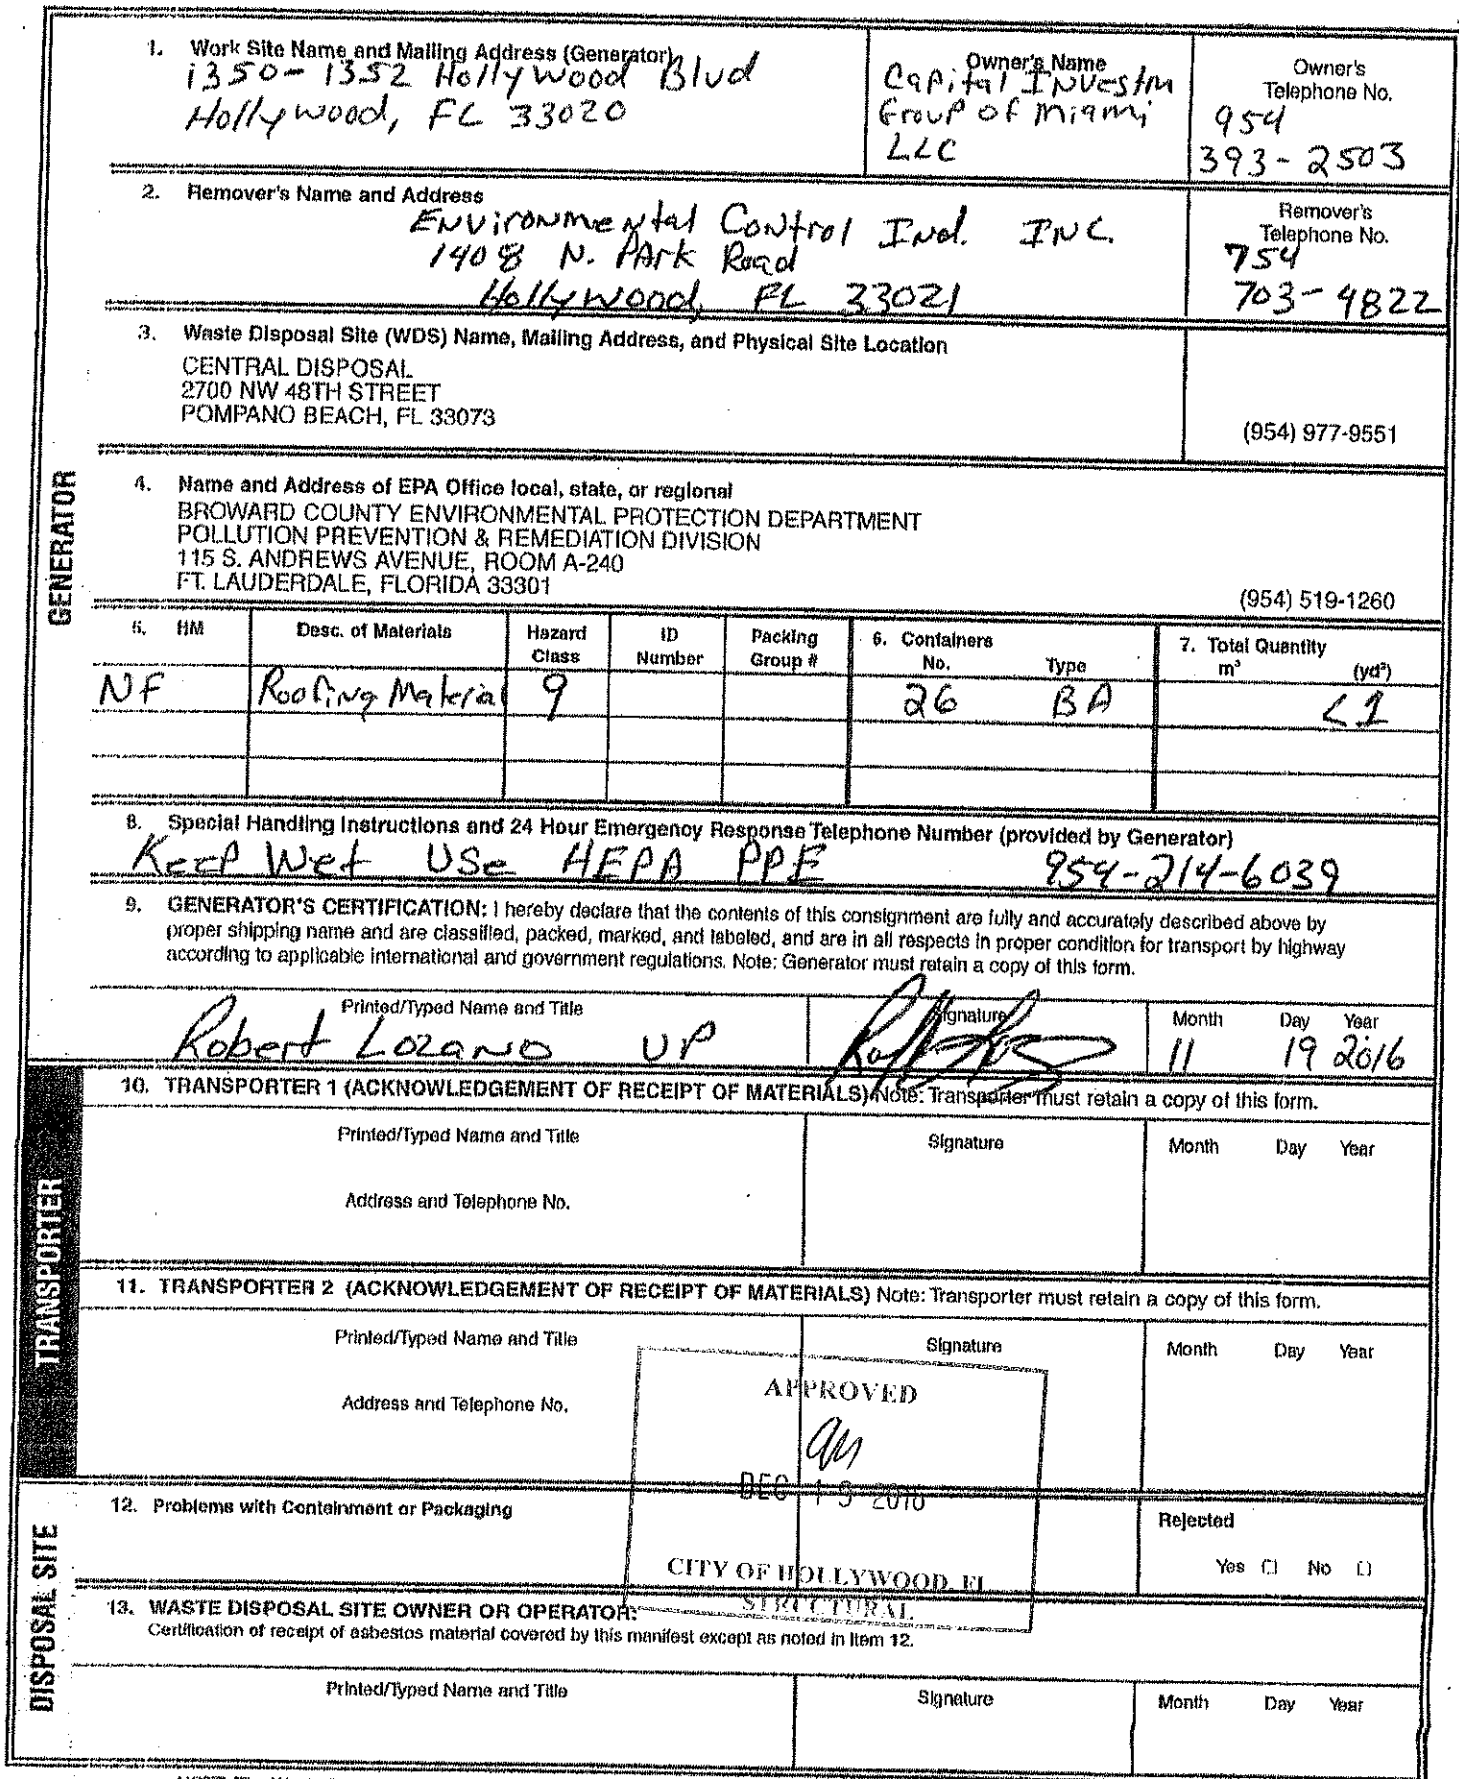 1. Work Site Name and Mailing Address (Generator)
1350-1352 Hollywood Blvd
Hollywood, FL 33020
Owner's Name
Capital Investm
Group of Miami
LLC
Owner's
Telephone No.
954
393-2503
2. Remover's Name and Address
Environmental Control Ind. INC.
1408 N. Park Road
Hollywood, FL 33021
Remover's
Telephone No.
754
703-4822
3. Waste Disposal Site (WDS) Name, Mailing Address, and Physical Site Location
CENTRAL DISPOSAL
2700 NW 48TH STREET
POMPANO BEACH, FL 33073
(954) 977-9551
GENERATOR
4. Name and Address of EPA Office local, state, or regional
BROWARD COUNTY ENVIRONMENTAL PROTECTION DEPARTMENT
POLLUTION PREVENTION & REMEDIATION DIVISION
115 S. ANDREWS AVENUE, ROOM A-240
FT. LAUDERDALE, FLORIDA 33301
(954) 519-1260
5. HM Desc. of Materials Hazard Class ID Number Packing Group # 6. Containers No. Type 7. Total Quantity m³ (yd³)
NF Roofing Material 9 26 BA <1
8. Special Handling Instructions and 24 Hour Emergency Response Telephone Number (provided by Generator)
Keep Wet Use HEPA PPE 954-214-6039
9. GENERATOR'S CERTIFICATION: I hereby declare that the contents of this consignment are fully and accurately described above by
proper shipping name and are classified, packed, marked, and labeled, and are in all respects in proper condition for transport by highway
according to applicable international and government regulations. Note: Generator must retain a copy of this form.
Printed/Typed Name and Title Signature Month Day Year
Robert Lozano VP 11 19 2016
TRANSPORTER
10. TRANSPORTER 1 (ACKNOWLEDGEMENT OF RECEIPT OF MATERIALS) Note: Transporter must retain a copy of this form.
Printed/Typed Name and Title Signature Month Day Year
Address and Telephone No.
11. TRANSPORTER 2 (ACKNOWLEDGEMENT OF RECEIPT OF MATERIALS) Note: Transporter must retain a copy of this form.
Printed/Typed Name and Title Signature Month Day Year
Address and Telephone No.
APPROVED
DEC 2016
CITY OF HOLLYWOOD, FL
STRUCTURAL
DISPOSAL SITE
12. Problems with Containment or Packaging
Rejected
Yes No
13. WASTE DISPOSAL SITE OWNER OR OPERATOR:
Certification of receipt of asbestos material covered by this manifest except as noted in Item 12.
Printed/Typed Name and Title Signature Month Day Year